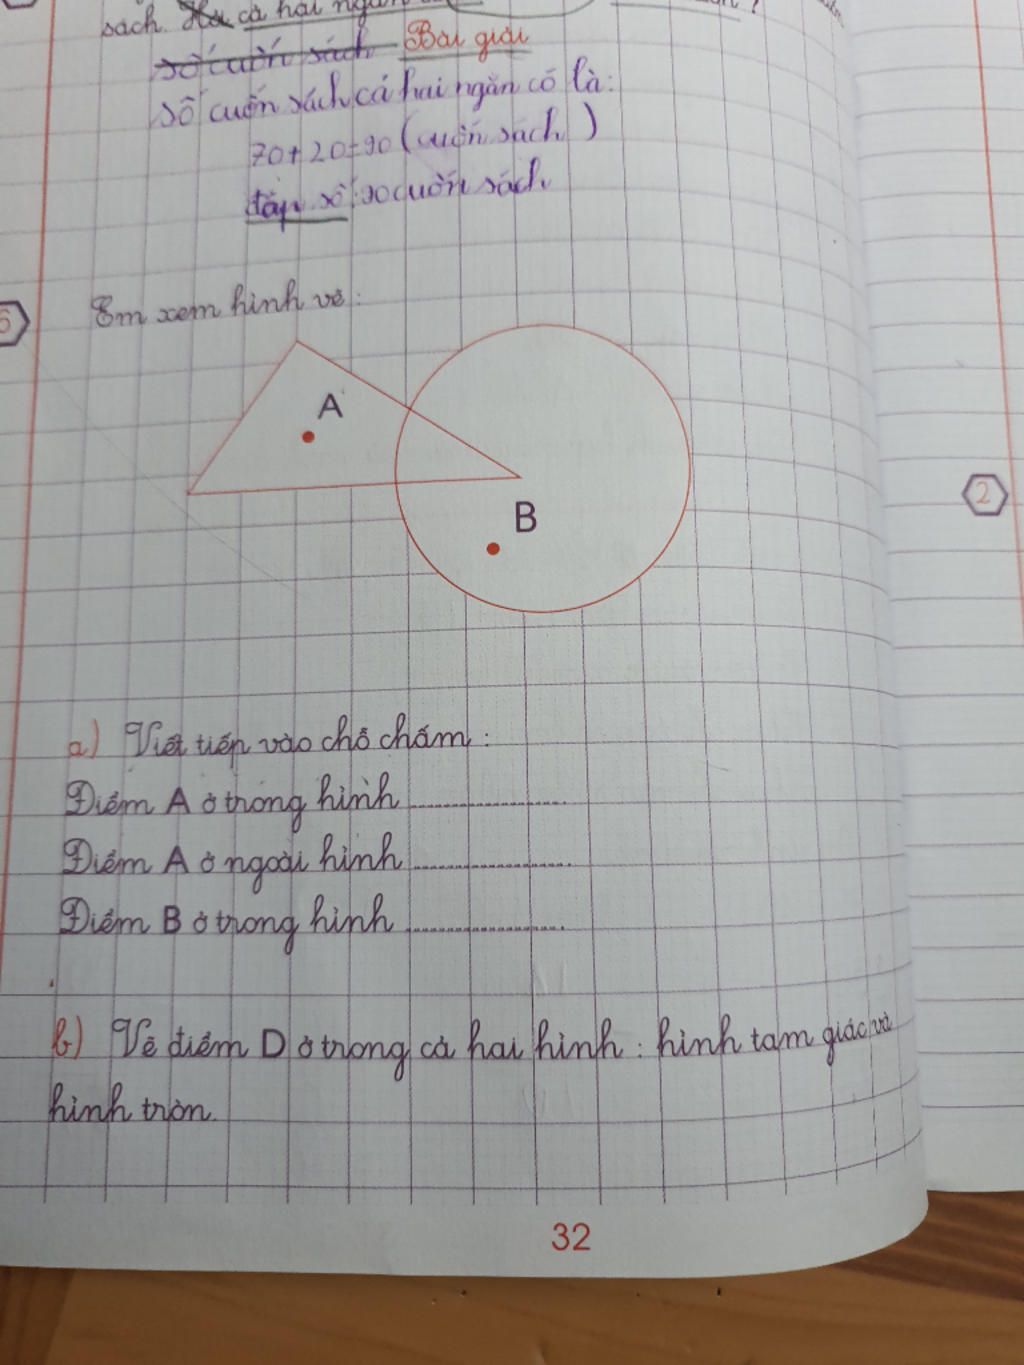 sách. cả hai ngăn
số cuốn sách Bài giải
số cuốn sách cả hai ngăn có là:
70+20=90 (cuốn sách)
đáp số: 90 cuốn sách
5
Em xem hình vẽ:
A
B
2
a) Viết tiếp vào chỗ chấm:
Điểm A ở trong hình ....................
Điểm A ở ngoài hình ....................
Điểm B ở trong hình ....................
b) Vẽ điểm D ở trong cả hai hình: hình tam giác và
hình tròn.
32